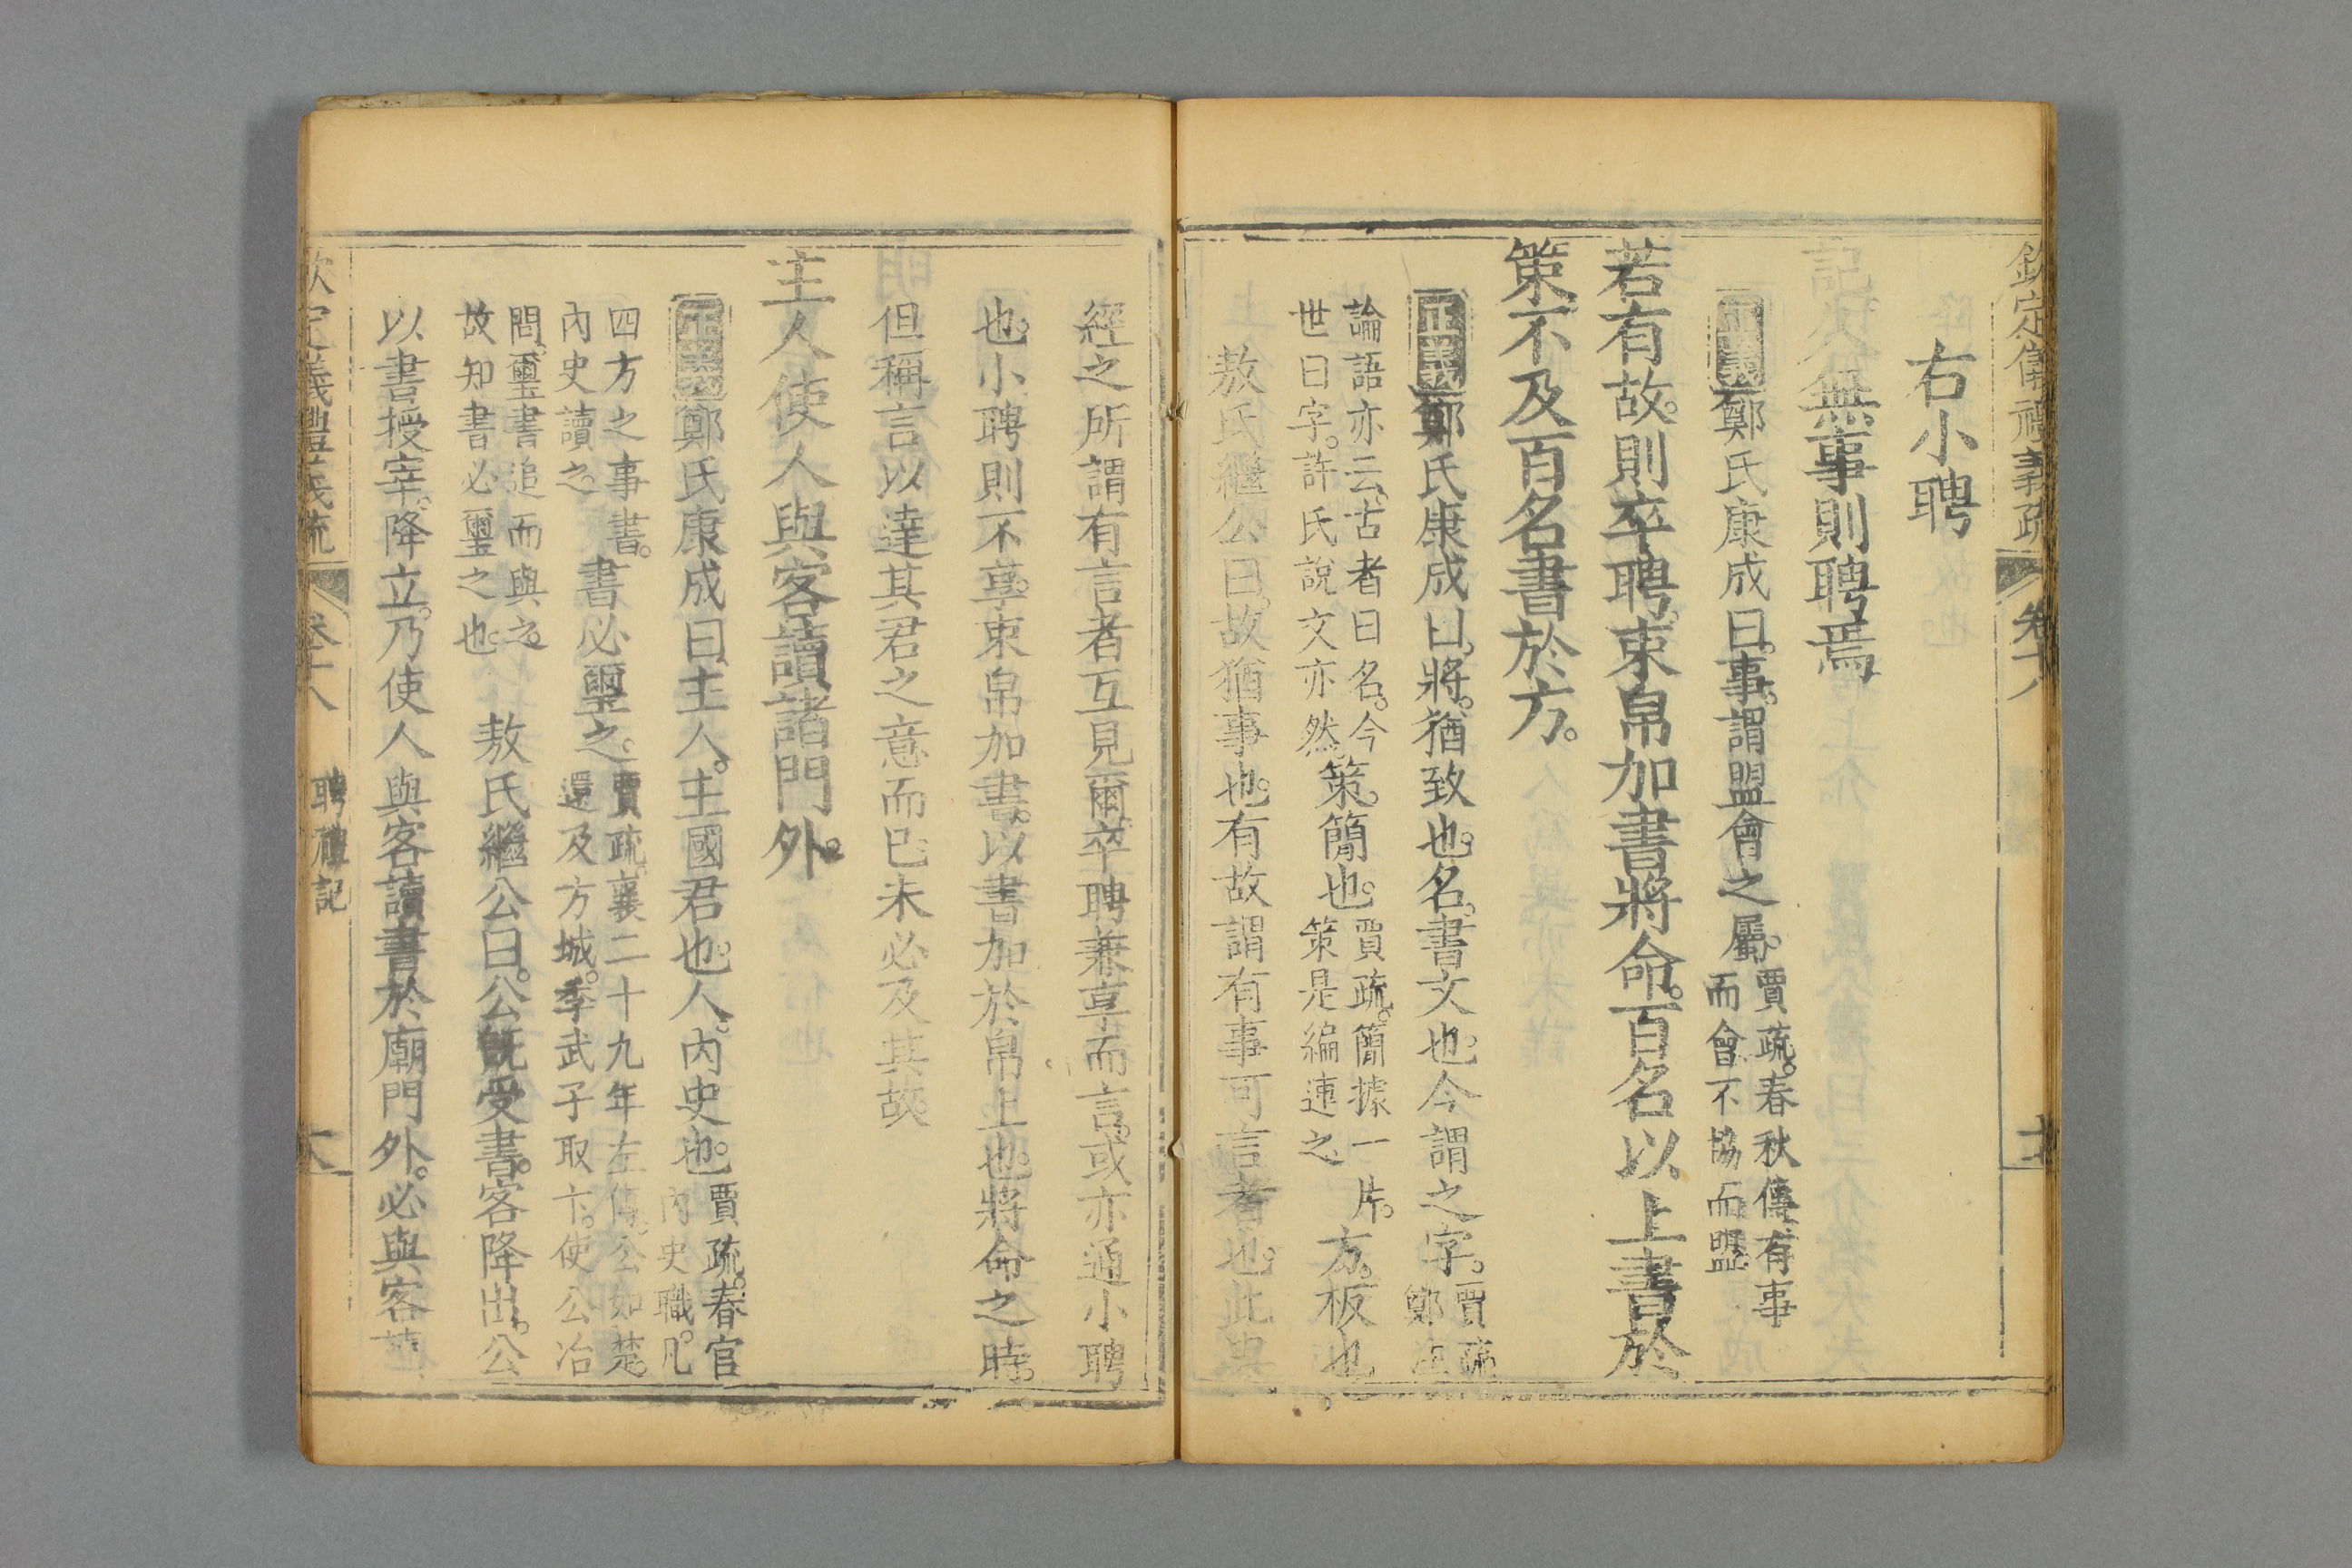 欽定儀禮義疏 卷十八
右小聘
記久無事則聘焉
正義鄭氏康成曰事謂盟會之屬賈疏春秋傳有事
而會不協而盟
若有故則卒聘束帛加書將命百名以上書於
策不及百名書於方
正義鄭氏康成曰將猶致也名書文也今謂之字賈疏
鄭注
論語亦云古者曰名今
世曰字許氏說文亦然策簡也賈疏簡據一片
策是編連之方板也
敖氏繼公曰故猶事也有故謂有事可言者也此
經之所謂有言者互見爾卒聘兼享而言或亦通小聘
也小聘則不享束帛加書以書加於帛上也將命之時
但稱言以達其君之意而已未必及其故
主人使人與客讀諸門外
正義鄭氏康成曰主人主國君也人內史也賈疏春官
內史職凡
四方之事書
內史讀之書必璽之賈疏襄二十九年左傳公如楚
還及方城季武子取卞使公冶
問璽書追而與之
故知書必璽之也敖氏繼公曰公既受書客降出公
以書授宰降立乃使人與客讀書於廟門外必與客讀
欽定儀禮義疏 卷十八 聘禮記